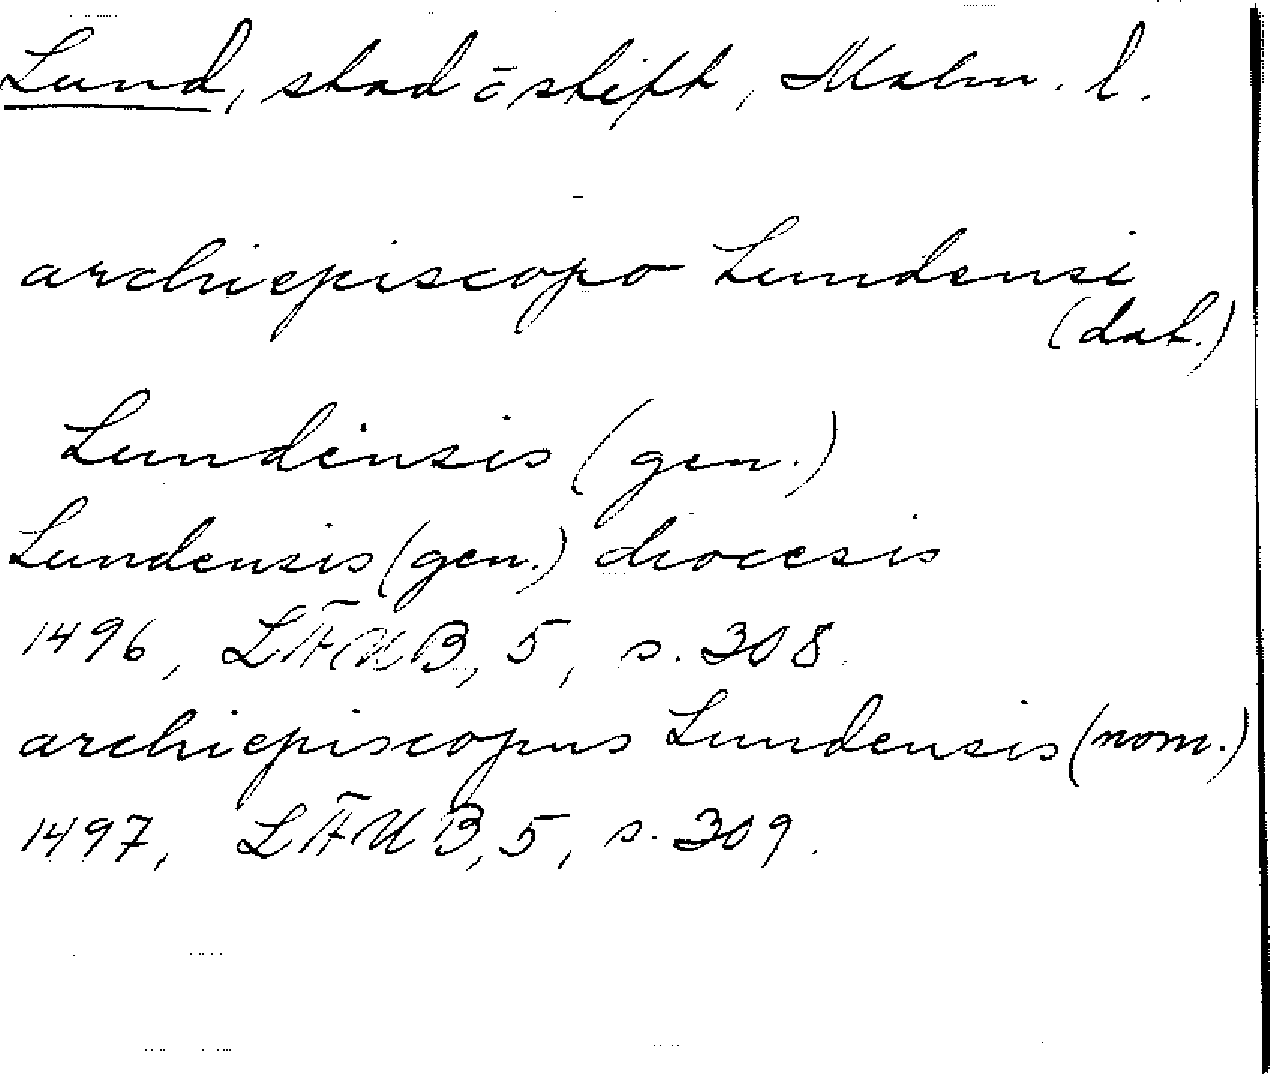 Lund, stad o stift, Malm. l.
archiepiscopo Lundensi
(dat.)
Lundensis (gen.)
Lundensis (gen.) diocesis
1496, LÄUB, 5, s. 308.
archiepiscopus Lundensis (nom.)
1497, LÄUB, 5, s. 309.